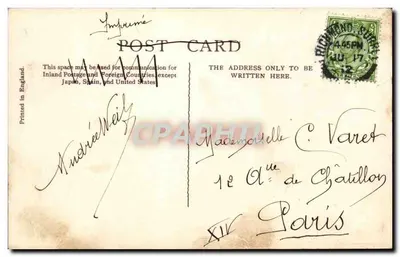 Imprimé
POST CARD
This space may be used for communication for
Inland Postage and Foreign Countries, except
Japan, Spain, and United States.
THE ADDRESS ONLY TO BE
WRITTEN HERE.
Printed in England.
RICHMOND, SURREY
4.45PM
JU 17
Andrée Weil
Mademoiselle C. Varet
12 Aue de Châtillon
XIV Paris
CPARAMA